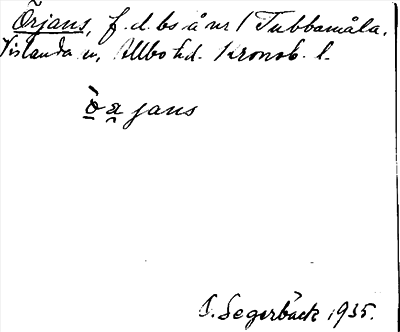 Örjans, f.d. bs å nr 1 Tubbamåla.
Vislanda sn, Allbo hd. Kronob. l.
ö̀ a̯ jans
O. Segerbäck 1935.